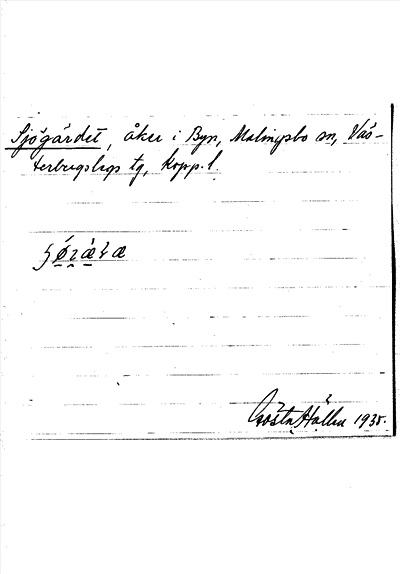 Sjögärdet, åker i Byn, Malingsbo sn, Väs-
terbergslags tg, Kopp. l.
Gösta Hallén 1935.